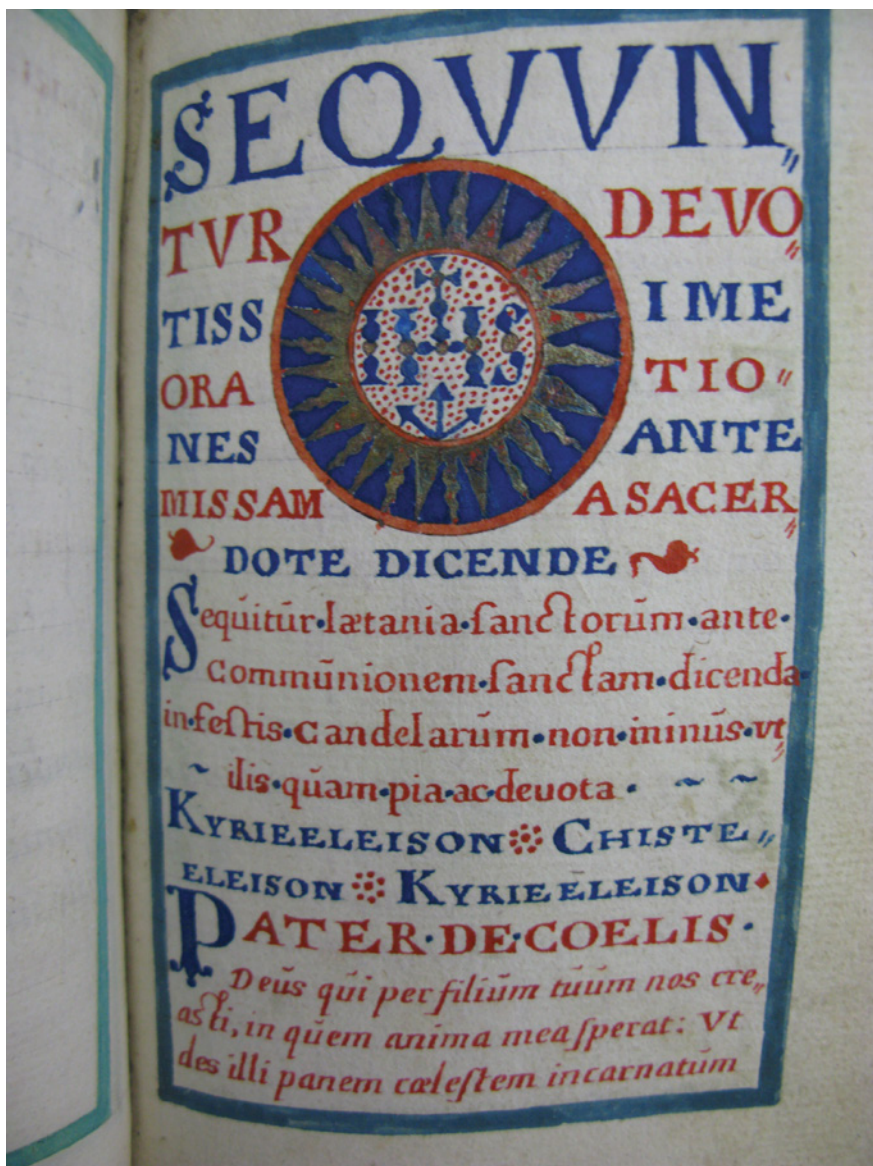 SEQVVN〃
TVR DEVO〃
TISS IME
IHS
ORA TIO〃
NES ANTE
MISSAM A SACER〃
DOTE DICENDE
Sequitur·lætania·sanctorum·ante·
Communionem·sanctam·dicenda·
in·festis·candelarum·non·minus·vt〃
ilis·quam·pia·ac·deuota·
KYRIE ELEISON CHISTE〃
ELEISON KYRIE ELEISON
PATER·DE·COELIS·
Deus qui per filium tuum nos cre〃
asti, in quem anima mea sperat: Vt
des illi panem cœlestem incarnatum